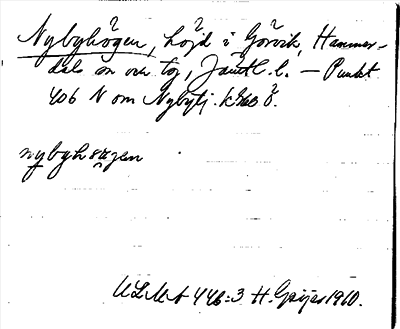 Nybyhögen, höjd i Görvik, Hammer-
dals sn och tg, Jämtl. l. — Punkt
406 N om Nybytj. k
nybyh
ULMA 446:3 H. Geijer 1910.